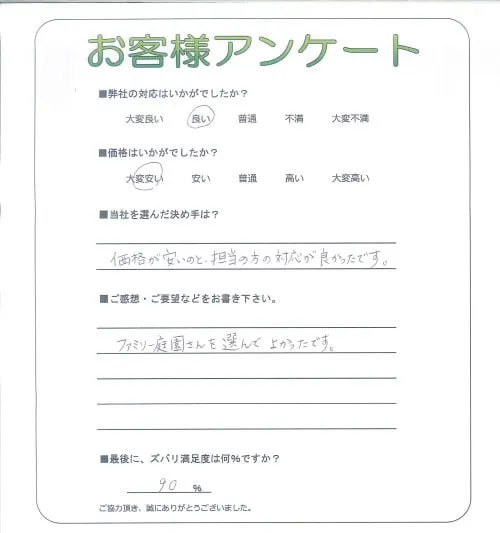 お客様アンケート
■弊社の対応はいかがでしたか？
大変良い 良い 普通 不満 大変不満
■価格はいかがでしたか？
大変安い 安い 普通 高い 大変高い
■当社を選んだ決め手は？
価格が安いのと、担当の方の対応が良かったです。
■ご感想・ご要望などをお書き下さい。
ファミリー庭園さんを選んで上かったです。
■最後に、ズバリ満足度は何％ですか？
90 ％
ご協力頂き、誠にありがとうございました。